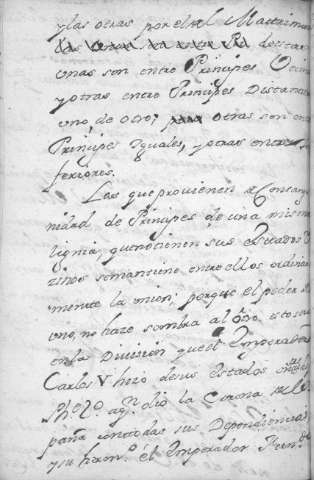 y las otras por el el Matrimon
de estas
unas son entre Principes Vecin
y otras entre Principes Distantes
uno, de otro; otras son entre
Principes Yguales, y otras entre
feriores.
Las que provienen de Consang
nidad, de Principes de una misma
Lignia que no tienen sus Estados
zinos se mantiene entre ellos ordina
mente la union; porque el poder de
uno, no haze sombra al otro, esto se vio
en la Division que el Emperador
Carlos V hizo de sus Estados
Phe. 2o. aqn. dio la Corona de Es
paña con todas sus Dependencias
y su herm.o el Emperador Fern.do